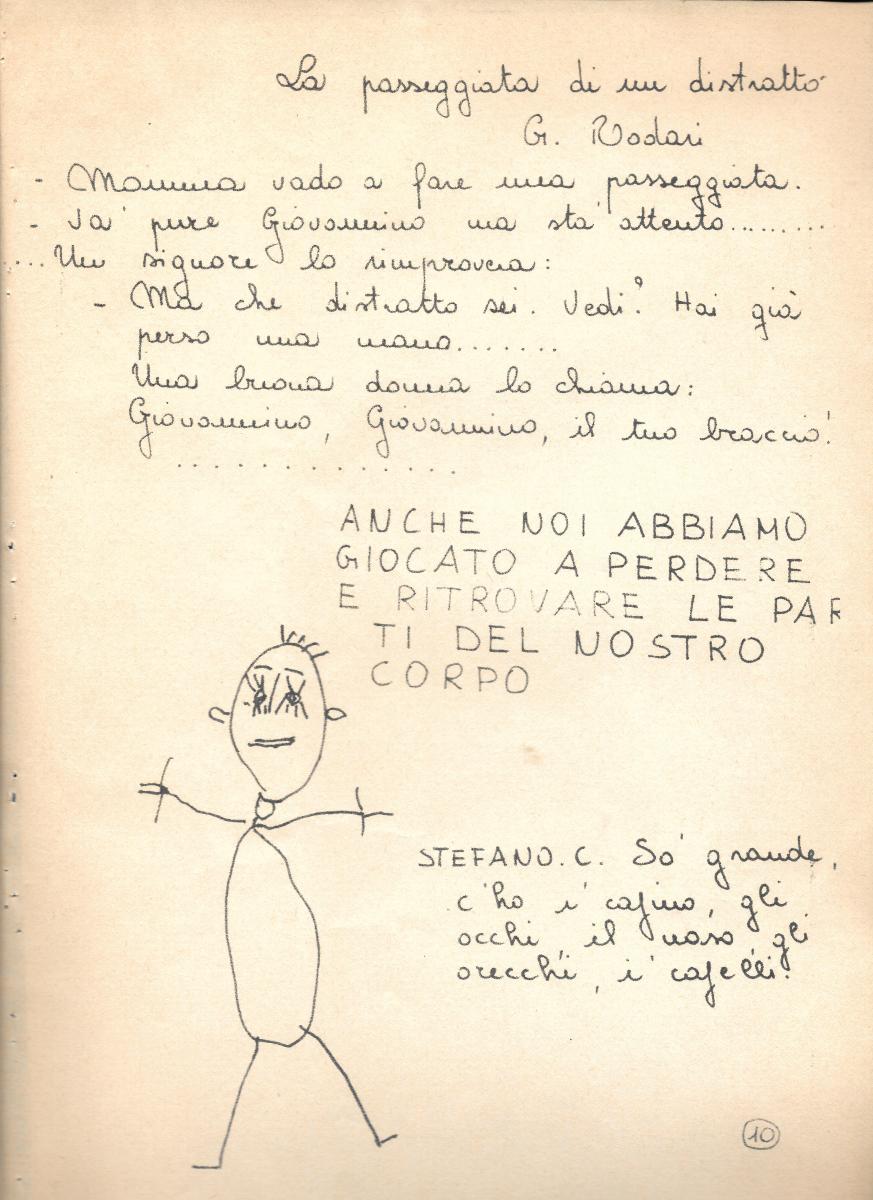 La passeggiata di un distratto
G. Rodari
- Mamma vado a fare una passeggiata.
- Va' pure Giovannino ma sta' attento.........
...Un signore lo rimprovera:
- Ma che distratto sei. Vedi? Hai già
perso una mano.......
Una buona donna lo chiama:
Giovannino, Giovannino, il tuo braccio!
..............
ANCHE NOI ABBIAMO
GIOCATO A PERDERE
E RITROVARE LE PAR
TI DEL NOSTRO
CORPO
STEFANO.C. So' grande,
c'ho i' capino, gli
occhi, il naso, gli
orecchi, i' capelli.
10